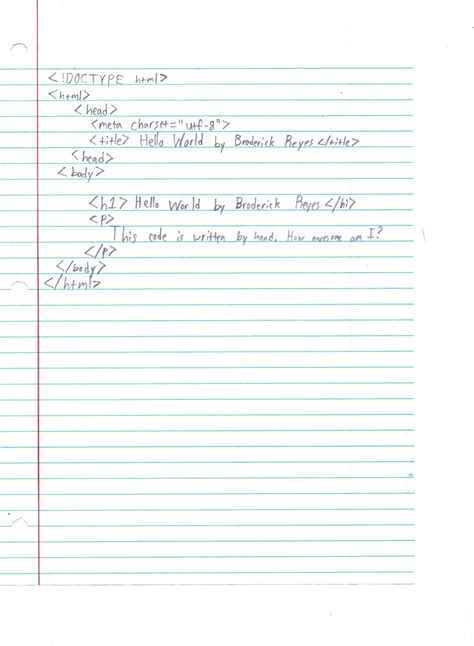 <!DOCTYPE html>
<html>
<head>
<meta charset="utf-8">
<title> Hello World by Broderick Reyes </title>
<head>
<body>
<h1> Hello World by Broderick Reyes </h1>
<P>
This code is written by hand. How awesome am I?
</P>
</body>
</html>